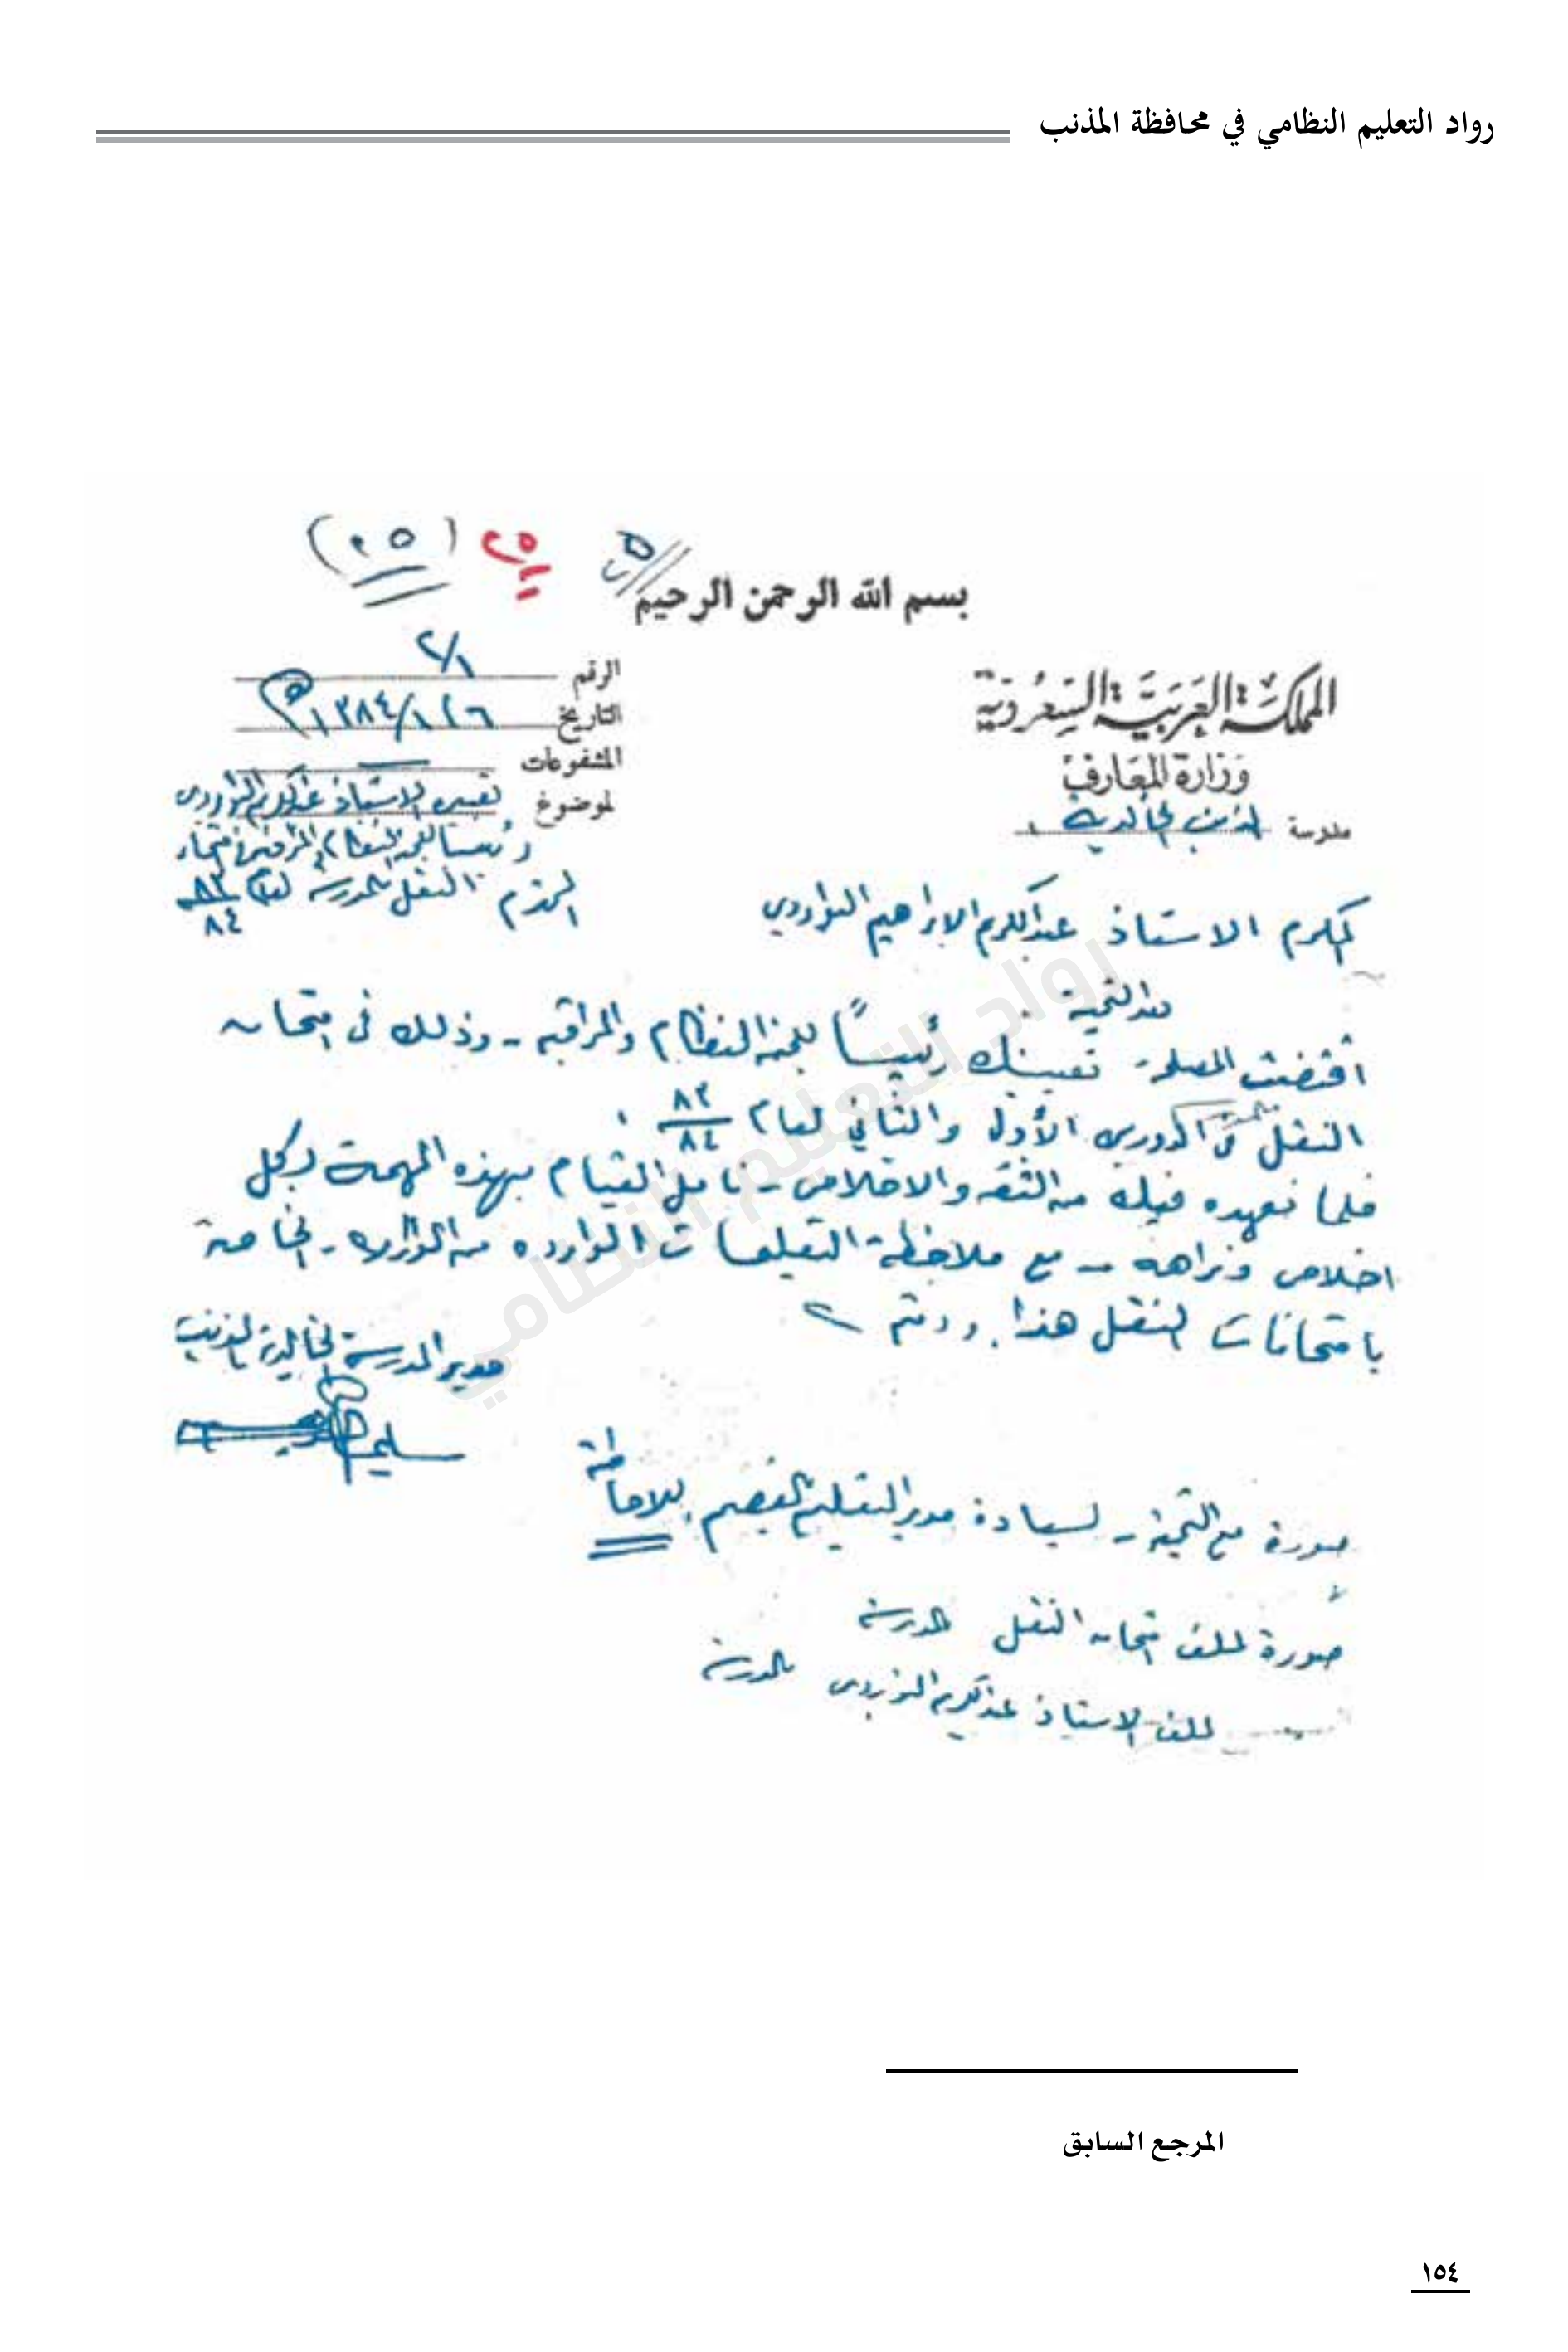 رواد التعليم النظامي في محافظة المذنب
(٢٥) ٢٥ ٢٥
بسم الله الرحمن الرحيم
المملكة العربية السعودية
وزارة المعارف
مدرسة المذنب الخالدية
الرقم ٢/١
التاريخ ٢٦/١/١٣٨٤هـ
المشفوعات
لموضوع تعيين الاستاذ عبدالكريم البواردي
رئيسا للجنة النظام والمراقبة في امتحان
النقل بالمدرسة لعام ٨٣/٨٤
المكرم الاستاذ عبدالكريم الابراهيم البواردي المحترم
بعد التحية
اقتضت المصلحة تعيينك رئيساً للجنة النظام والمراقبة - وذلك في امتحان
النقل من الدورين الأول والثاني لعام ٨٣/٨٤
فلما نعهده فيك من الثقة والاخلاص - نأمل القيام بهذه المهمة بكل
اخلاص ونزاهه - مع ملاحظة التعليمات الوارده من الوزارة - الخاصة
بامتحانات النقل هذا ودمتم
مدير المدرسة الخالدية بالمذنب
صورة مع التحية - لسعادة مدير التعليم بالقصيم للاحاطة
صورة لملف امتحان النقل بالمدرسة
لملف الاستاذ عبدالكريم البواردي بالمدرسة
رواد التعليم النظامي
المرجع السابق
١٥٤